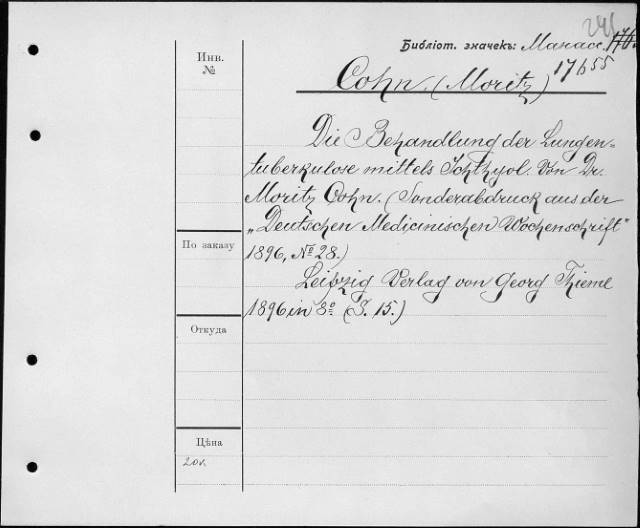 241
Библіот. значекъ: Манасс. 176
17655
Cohn. (Moritz)
Инв.
№
Die Behandlung der Lungen-
tuberkulose mittels Ichthyol. Von Dr.
Moritz Cohn. (Sonderabdruck aus der
„Deutschen Medicinischen Wochenschrift"
По заказу
1896, № 28.)
Leipzig Verlag von Georg Thieme
1896 in 8º (S. 15.)
Откуда
Цѣна